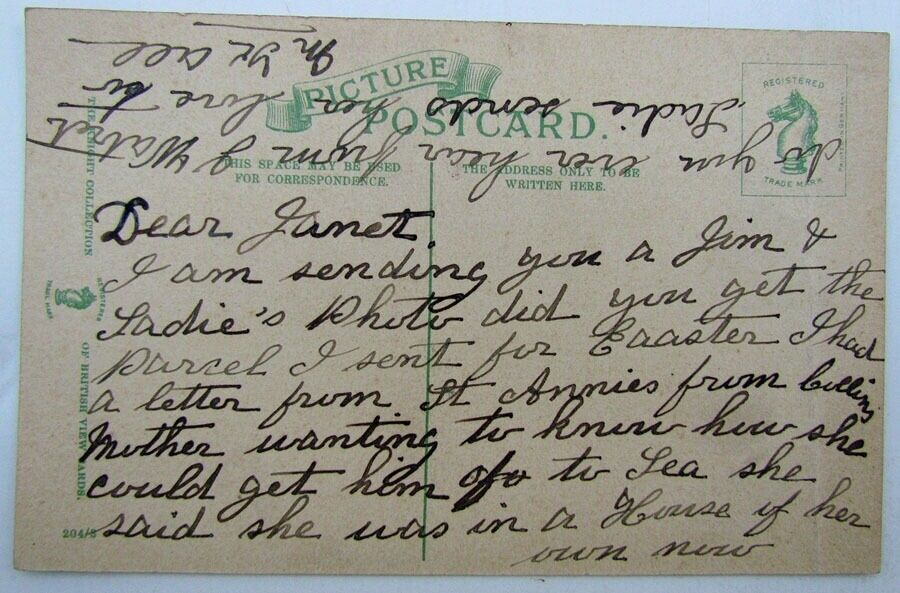 PICTURE
POSTCARD.
THIS SPACE MAY BE USED
FOR CORRESPONDENCE.
THE ADDRESS ONLY TO BE
WRITTEN HERE.
REGISTERED
TRADE MARK
PRINTED IN GERMANY
THE KNIGHT COLLECTION
REGISTERED
TRADE MARK
OF BRITISH VIEW CARDS.
204/8
Dear Janet
I am sending you a Jim &
Sadie's Photo did you get the
Parcel I sent for Eaaster I had
a letter from St Annies from
Mother wanting to know how she
could get him to Sea she
said she was in a House of her
own now
do you ever hear from J
Sadie sends her love to
all